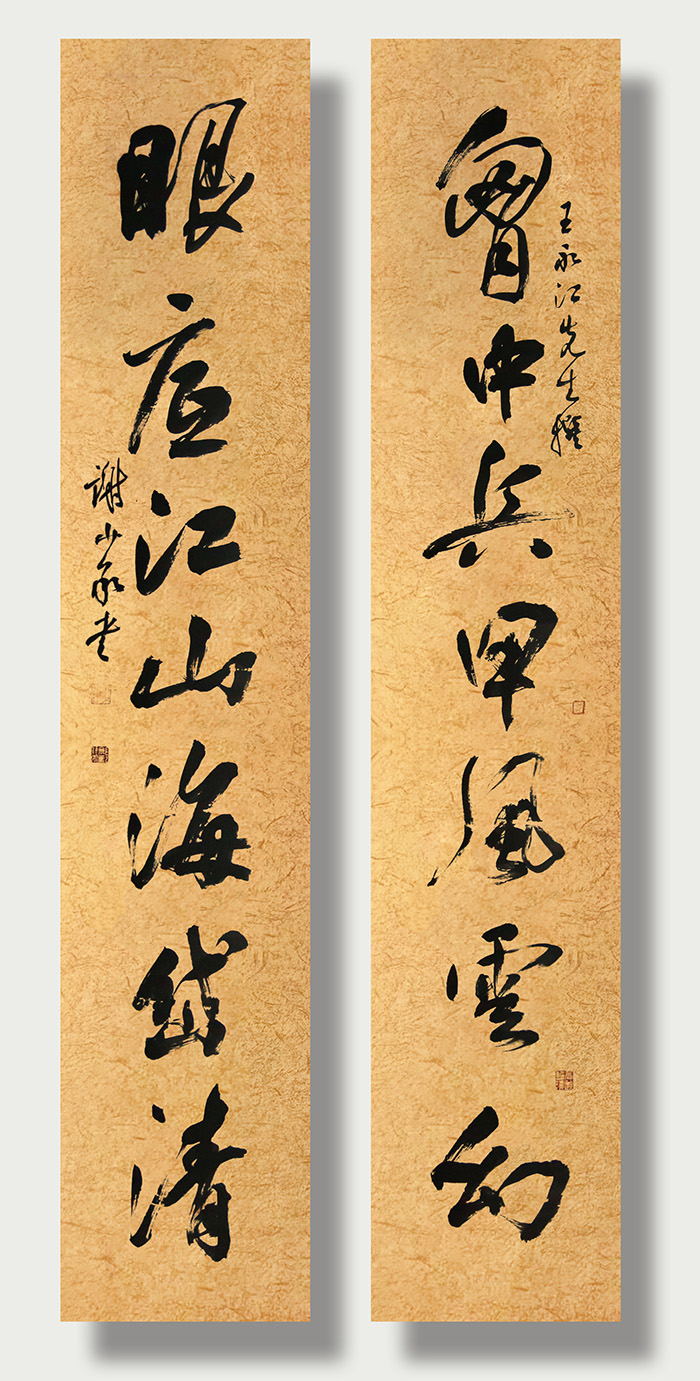 王永江先生撰
胷中兵甲風雲幻
眼底江山海岱清
謝少承書